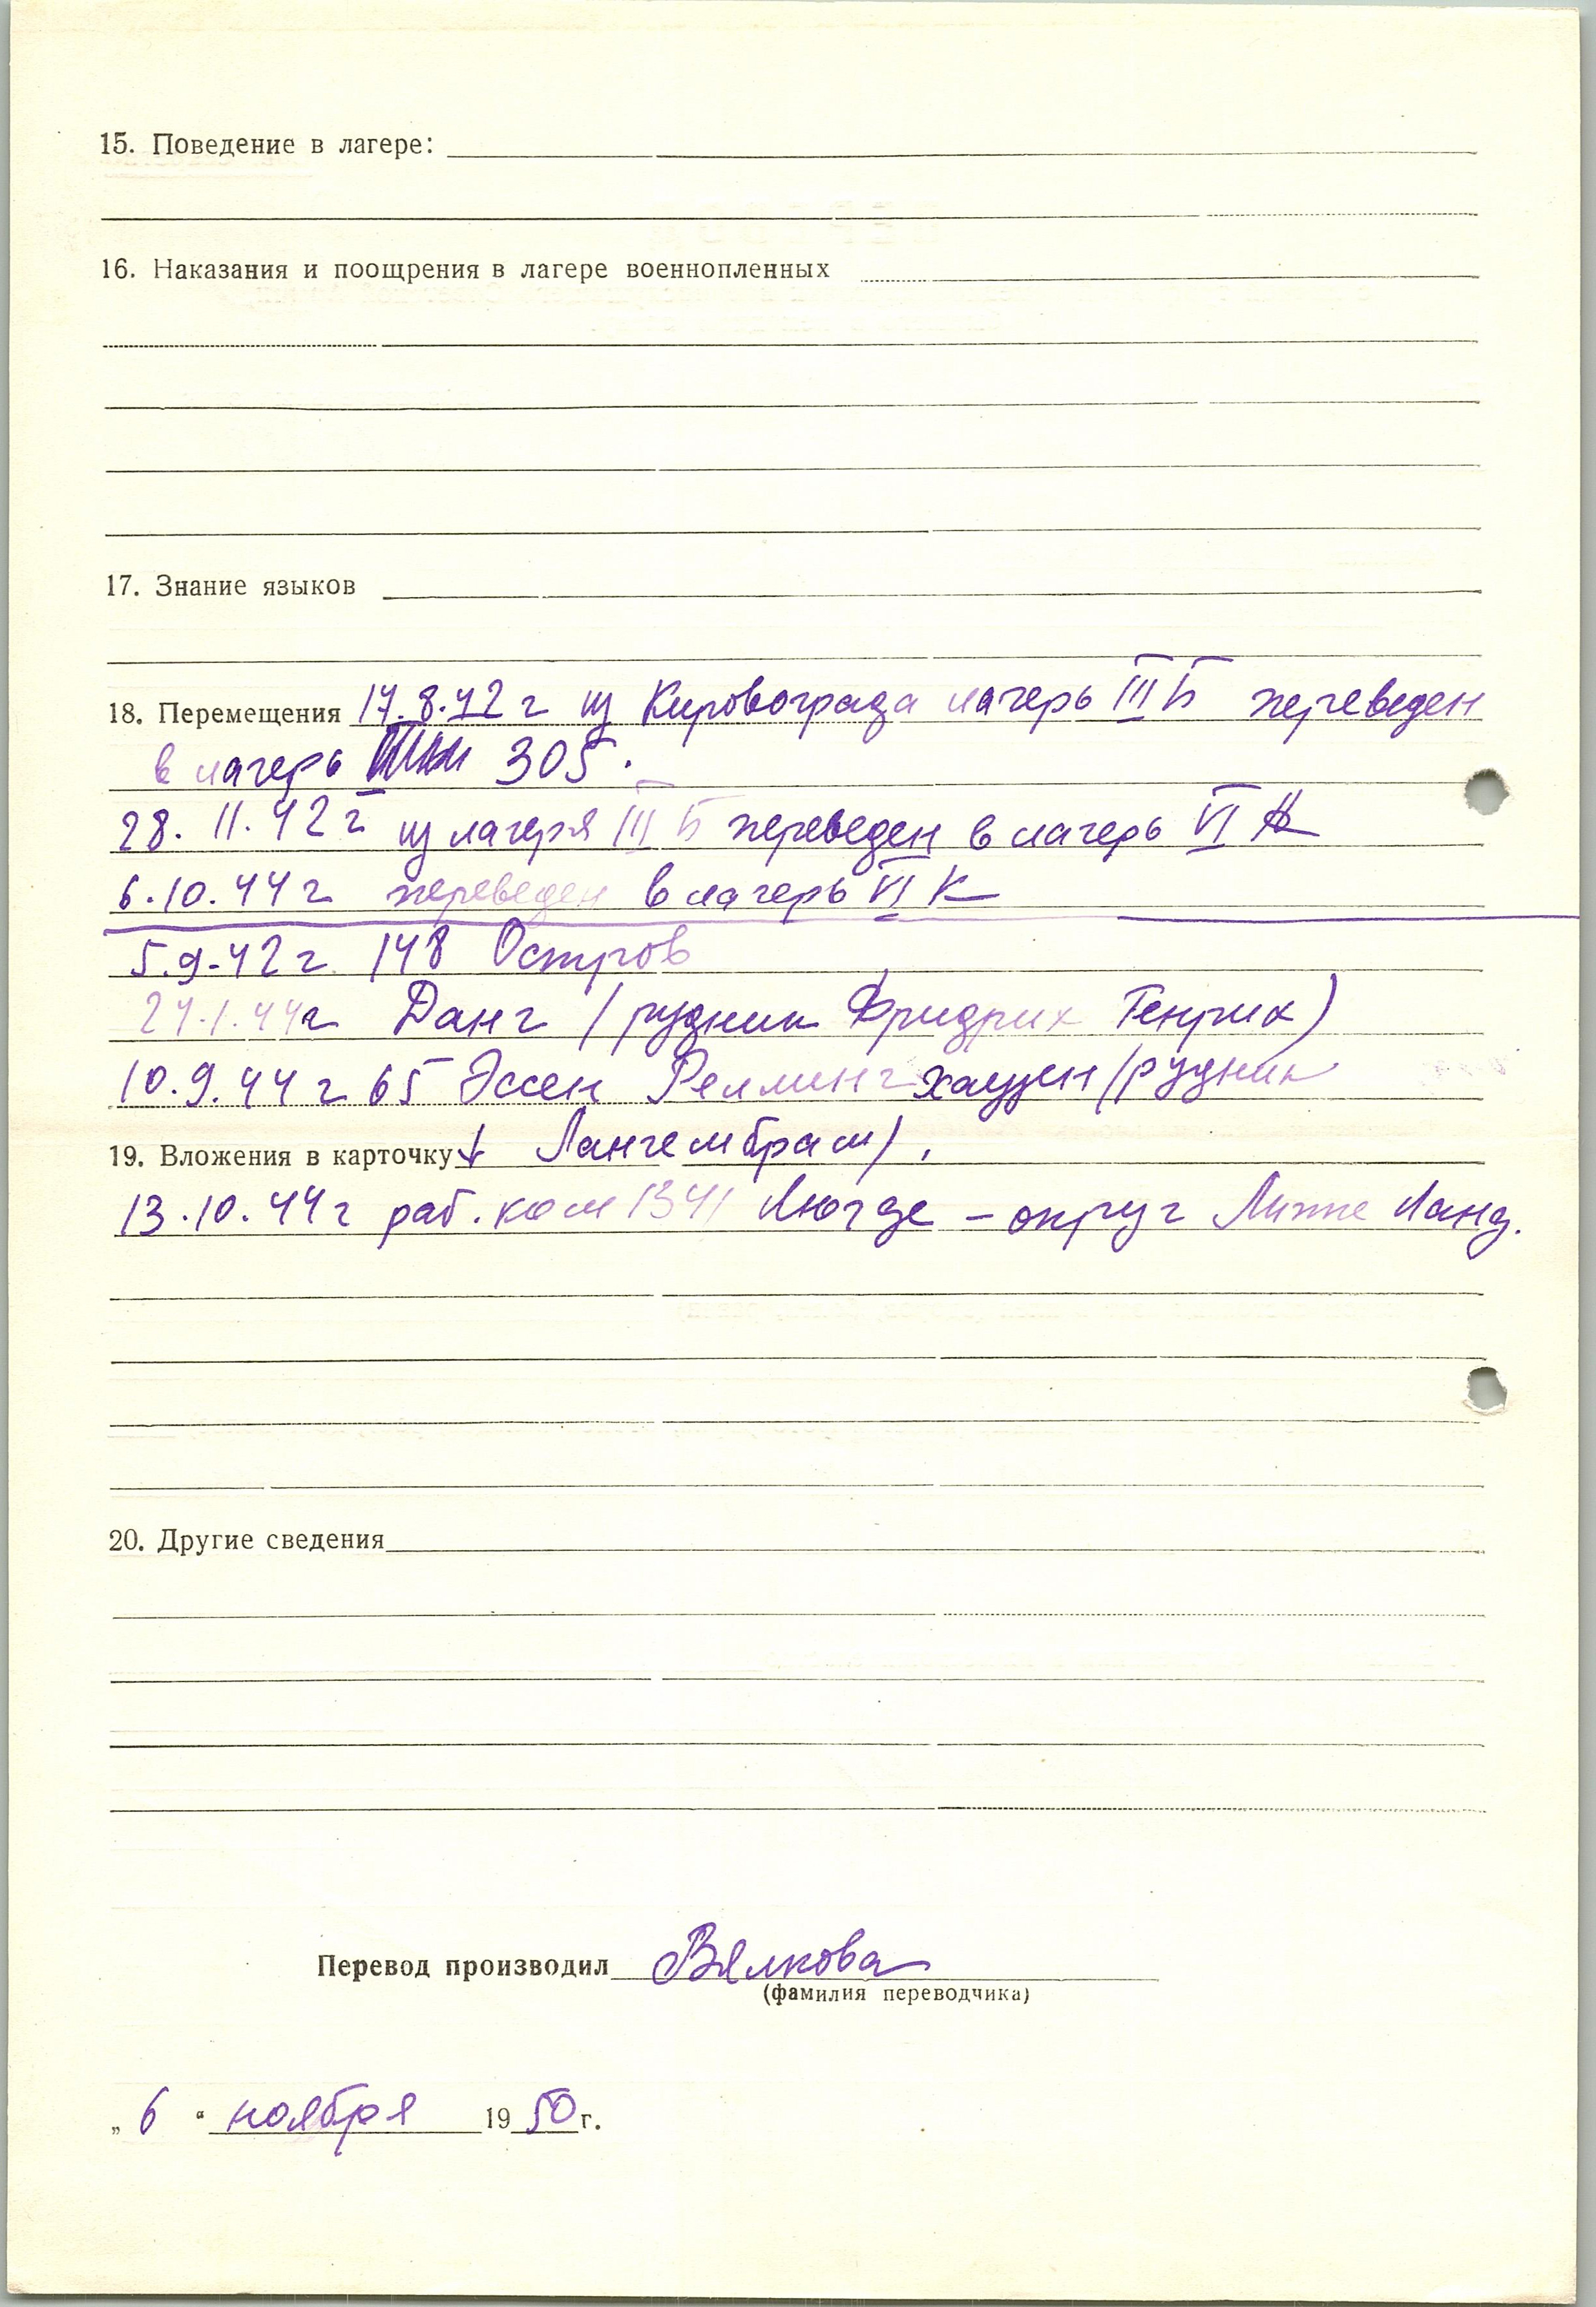 15. Поведение в лагере:
16. Наказания и поощрения в лагере военнопленных
17. Знание языков
18. Перемещения 17.8.42 г из Кировограда лагерь III Б переведен
в лагерь 305.
28. 11. 42 г из лагеря III Б переведен в лагерь VI А
6.10.44 г переведен в лагерь VI К
5.9.42 г. 148 Остров
27.1.44 г Данг / рудник Фридрих Генрих)
10.9.44 г 65 Эссен Реллингхаузен /рудник
19. Вложения в карточку ↓ Лангембрам).
13.10.44 г раб. ком 1341 Люгде - округ Липпе Ланд.
20. Другие сведения
Перевод производил Вялкова
(фамилия переводчика)
„ 6 “ ноября 1950 г.